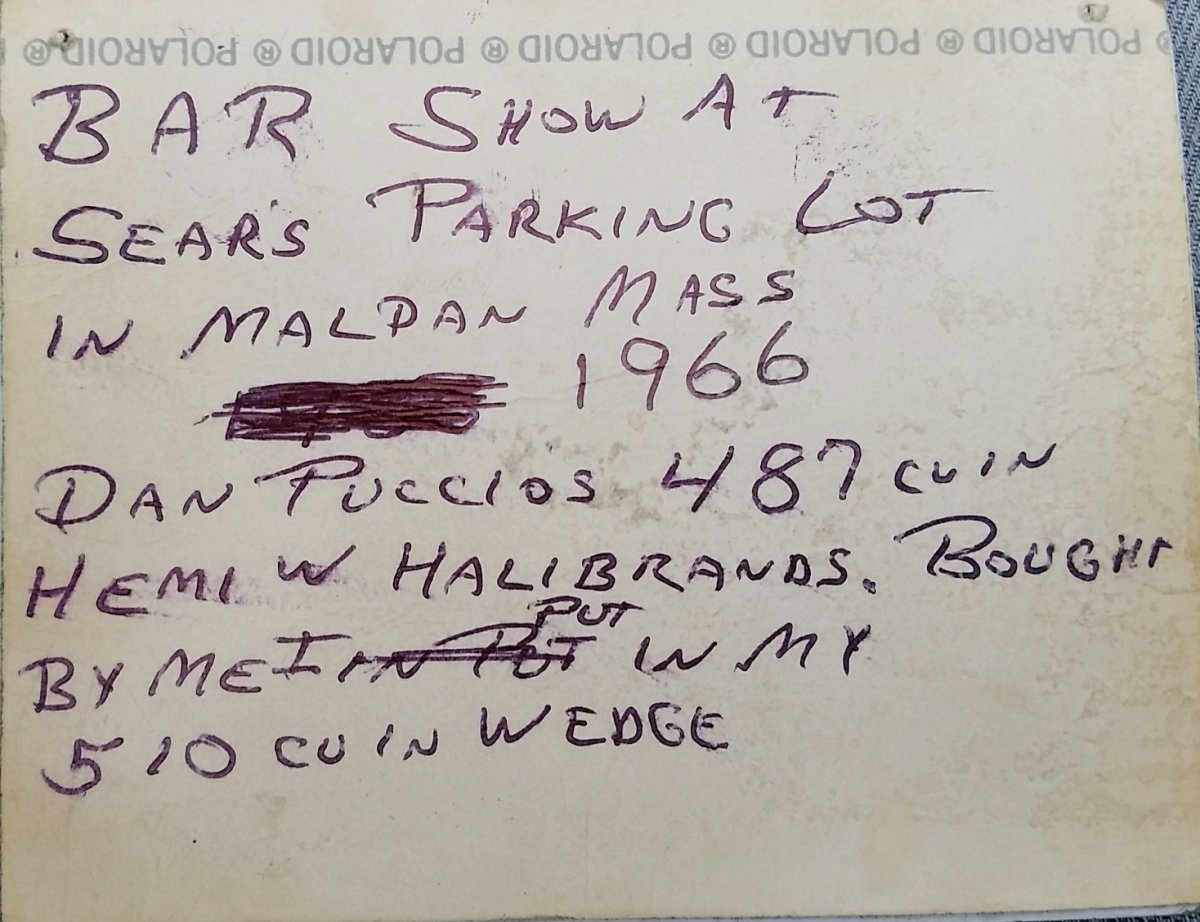 ® POLAROID ® POLAROID ® POLAROID ® POLAROID ® POLAROID ®
BAR SHOW AT
SEARS PARKING LOT
IN MALDAN MASS
1966
DAN PUCCIOS 487 CU IN
HEMI W HALIBRANDS. BOUGHT
PUT
BY ME I IN PUT IN MY
510 CU IN WEDGE